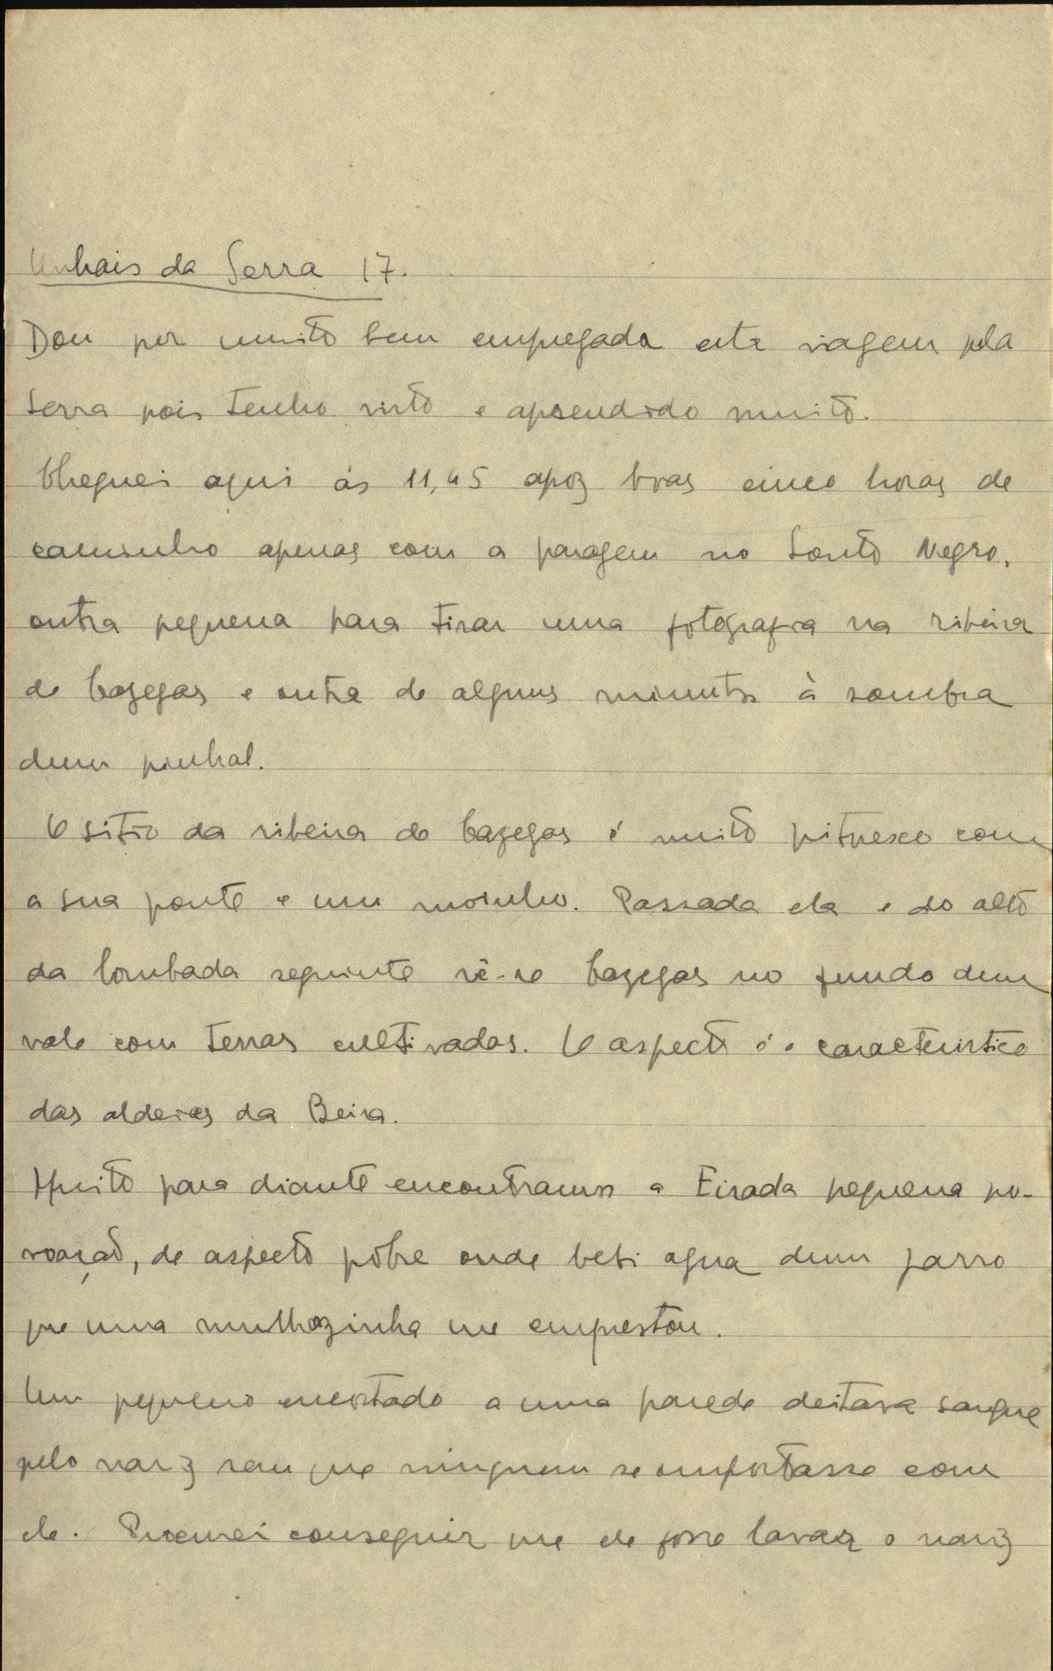 Unhais da Serra 17.
Dou por muito bem empregada esta viagem pela
Serra pois tenho visto e aprendido muito.
Cheguei aqui ás 11,45 apoz boas cinco horas de
caminho apenas com a paragem no Souto Negro,
outra pequena para tirar uma fotografia na ribeira
de Cazegas e outra de alguns minutos à sombra
dum pinhal.
O sitio da ribeira de Cazegas é muito pitoresco com
a sua ponte e um moinho. Passada ela e do alto
da lombada seguinte vê-se Cazegas no fundo dum
vale com terras cultivadas. O aspecto é o caracteristico
das aldeias da Beira.
Muito para diante encontramos a Eirada pequena po-
voação, de aspecto pobre onde bebi agua dum jarro
que uma mulherzinha me emprestou.
Um pequeno encostado a uma parede deitava sangue
pelo nariz sem que ninguem se importasse com
ele. Procurei conseguir que ele fosse lavar o nariz